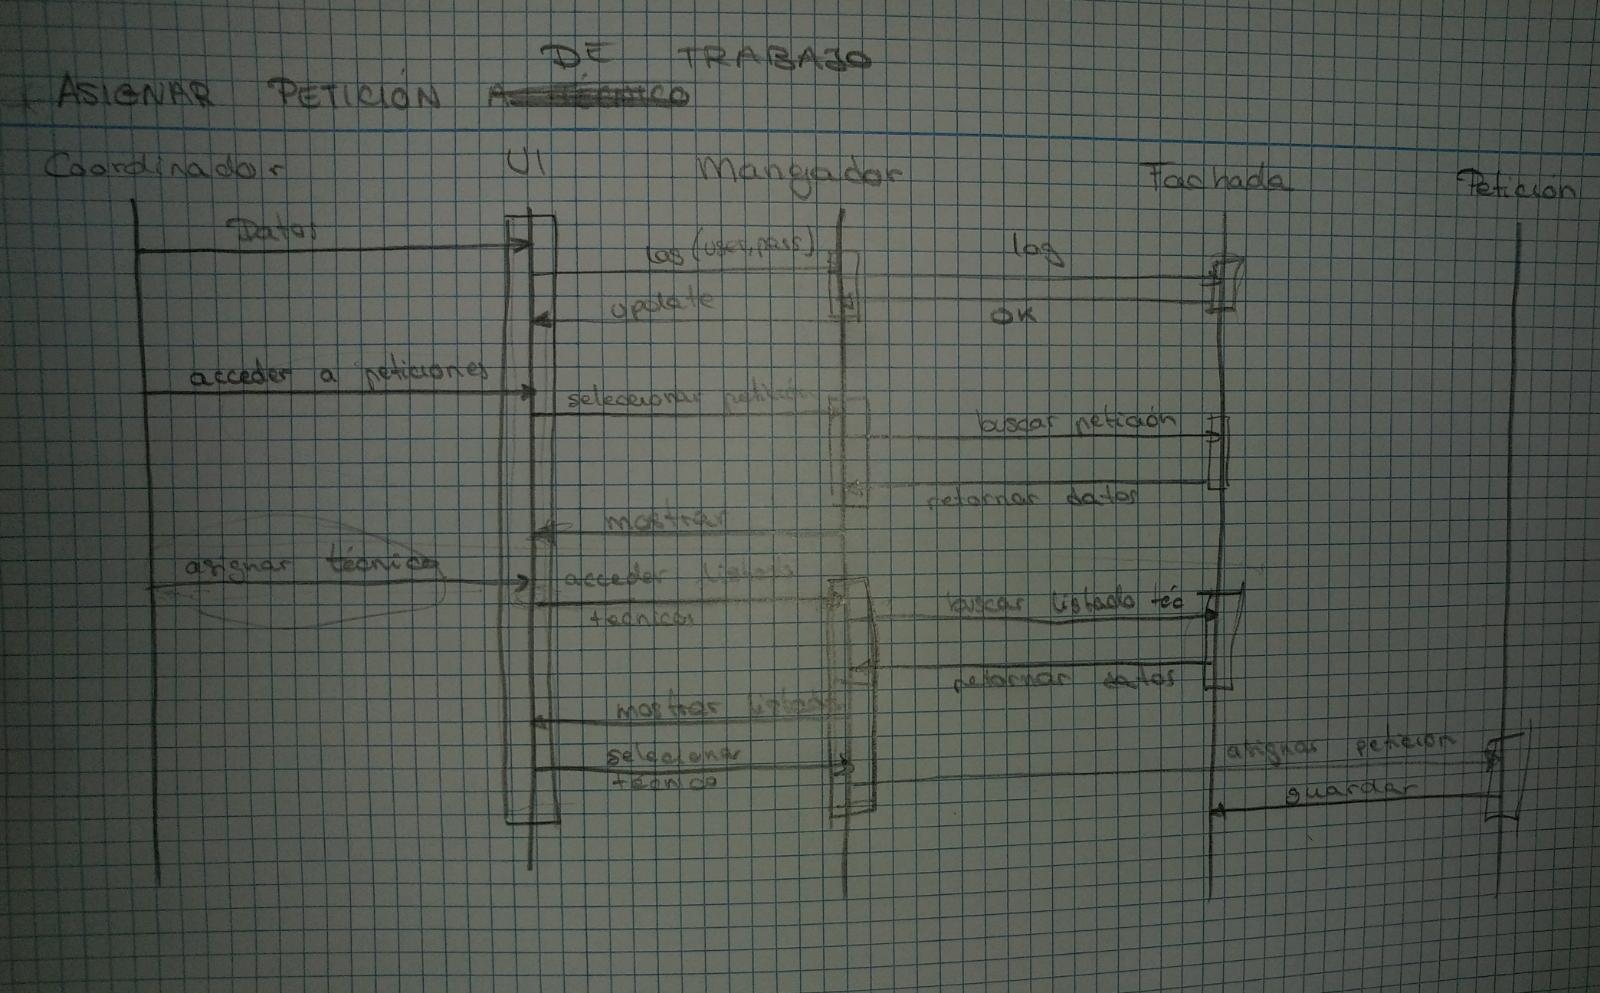 DE TRABAJO
ASIGNAR PETICIÓN
Coordinador UI Mangador Fachada Petición
Datos
log (user, pass) log
update OK
acceder a peticiones
seleccionar petición
buscar petición
retornar datos
mostrar
asignar técnico
acceder listado
técnicos
buscar listado téc
retornar datos
mostrar listado
selecionar
técnico
asignar petición
guardar